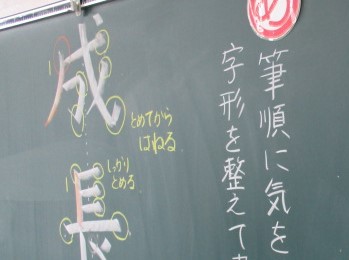 筆順に気を
字形を整えて
成長
とめてから
はねる
しっかり
とめる